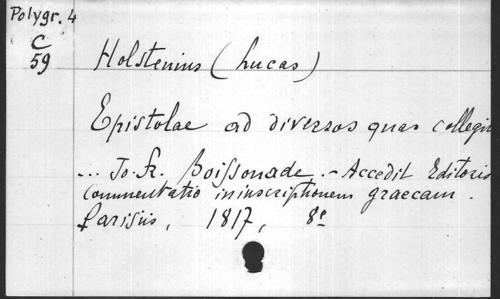 Polygr. 4
C
59
Holstenius (Lucas)
Epistolae ad diversos quas collegit
... Jo. Fr. Boissonade. - Accedit Editoris
commentatio in inscriptionem graecam.
Parisiis, 1817, 8º